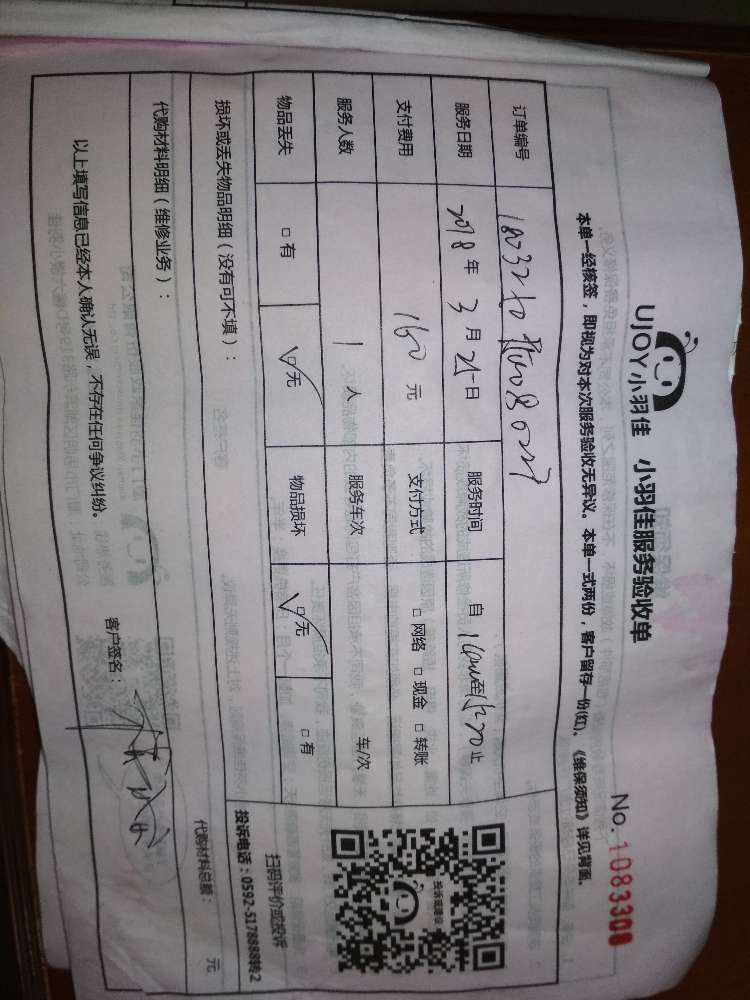 UJOY小羽佳 小羽佳服务验收单
No. 1083308
本单一经核签，即视为对本次服务验收无异议。本单一式两份，客户留存一份(红)。《维保须知》详见背面。
订单编号
服务日期 2018年 3月 25日 服务时间 自 至 止
支付费用 160 元 支付方式 □ 网络 □ 现金 □ 转账
服务人数 1 人 服务车次 车/次
物品丢失 □ 有 ☑ 无 物品损坏 ☑ 无 □ 有
投诉或建议
扫码评价或投诉
投诉电话：0592-5178888转2
损坏或丢失物品明细（没有可不填）：
代购材料明细（维修业务）： 代购材料总额： 元
以上填写信息已经本人确认无误，不存在任何争议纠纷。 客户签名：